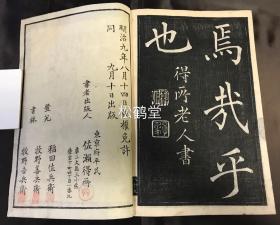 焉哉乎
也
得所老人書
明治九年八月十四日版權免許
同 九月十日出版
東京府平民
書者出版人 佐瀬得所
發兌 稲田佐兵衛
書林 牧野喜兵衛
牧野吉兵衛
松鹤堂